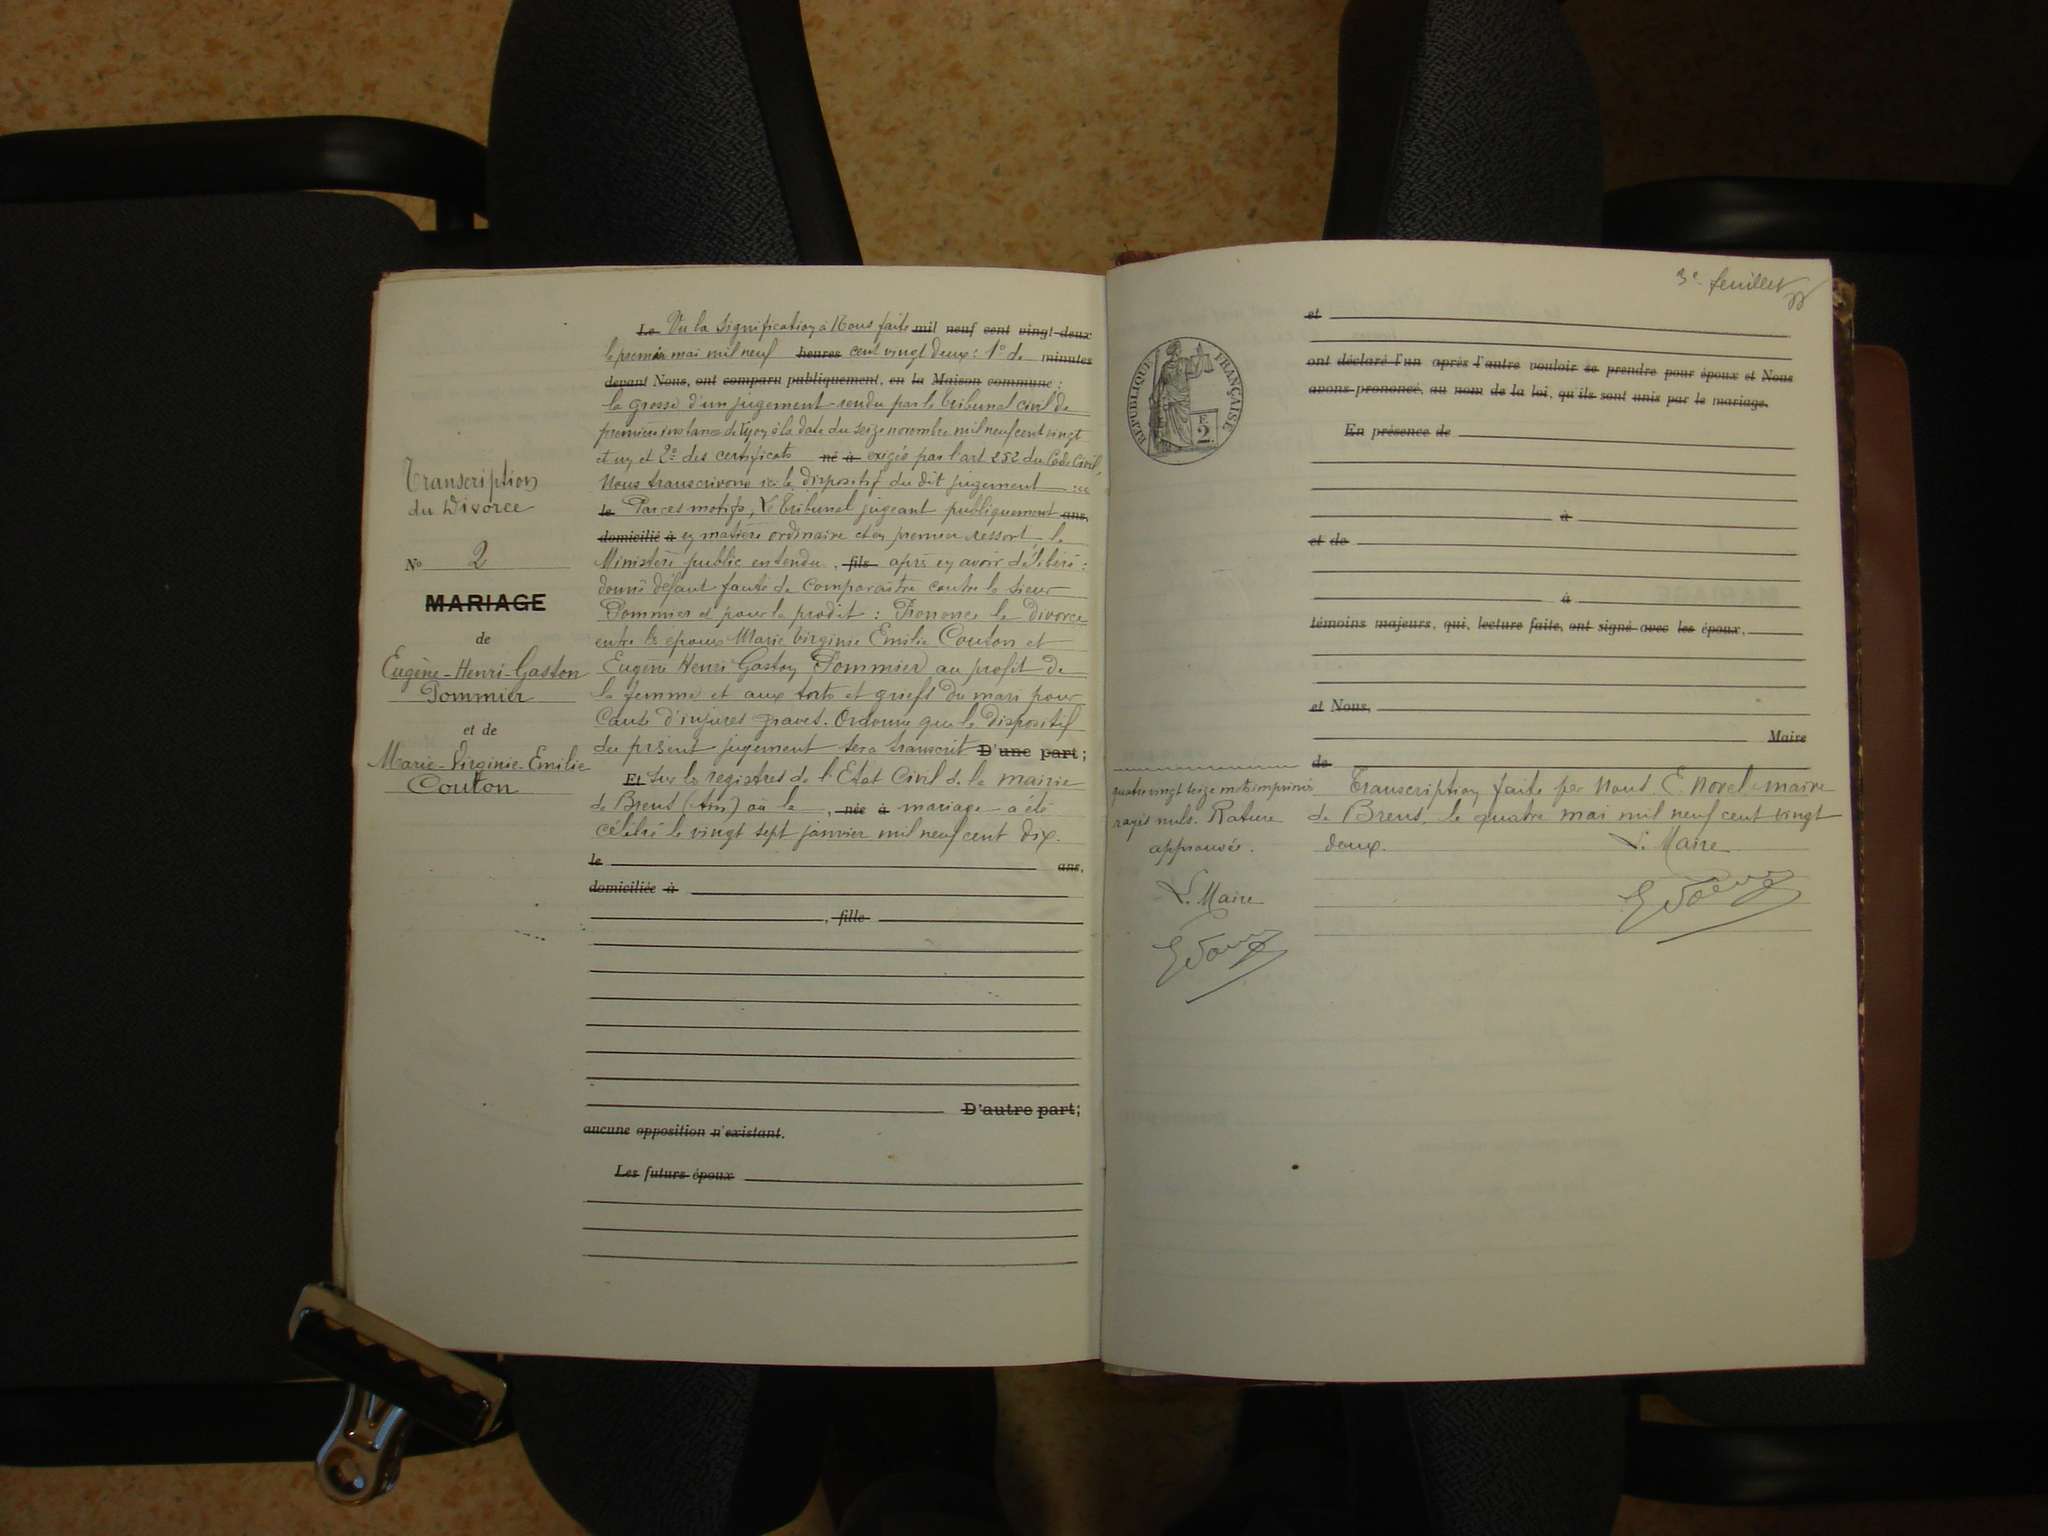 Transcription
du Divorce
No 2
MARIAGE
de
Eugène-Henri-Gaston
Pommier
et de
Marie-Virginie-Emilie
Couton
Le Vu la signification à Nous faite mil neuf cent vingt-deux
le premier mai mil neuf heures cent vingt deux : 1° de minutes
devant Nous, ont comparu publiquement, en la Maison commune :
la grosse d'un jugement rendu par le Tribunal civil de
première instance de Lyon à la date du seize novembre mil neuf cent vingt
et un et 2° des certificats né à exigés par l'art 252 du Code Civil,
Nous transcrivons ici le dispositif du dit jugement
le Par ces motifs, Le Tribunal jugeant publiquement ans,
domicilié à en matière ordinaire et en premier ressort, le
Ministère public entendu, fils après en avoir délibéré :
donne défaut faute de comparaître contre le sieur
Pommier et pour le profit : Prononce le divorce
entre les époux Marie Virginie Emilie Couton et
Eugène Henri Gaston Pommier au profit de
la femme et aux torts et griefs du mari pour
cause d'injures graves. Ordonne que le dispositif
du présent jugement sera transcrit D'une part;
Et sur les registres de l'Etat Civil de la mairie
de Brens (Ain) où le , née à mariage a été
célébré le vingt sept janvier mil neuf cent dix.
le ans,
domiciliée à
, fille
D'autre part;
aucune opposition n'existant.
Les futurs époux
3e feuillet
RÉPUBLIQUE FRANÇAISE
E
2
et
ont déclaré l'un après l'autre vouloir se prendre pour époux et Nous
avons prononcé, au nom de la loi, qu'ils sont unis par le mariage.
En présence de
à
et de
à
témoins majeurs, qui, lecture faite, ont signé avec les époux,
et Nous,
Maire
de
Transcription faite par Nous, E. Novel maire
de Brens, le quatre mai mil neuf cent vingt
deux. Le Maire
quatre vingt seize mots imprimés
rayés nuls. Rature
approuvée.
Le Maire